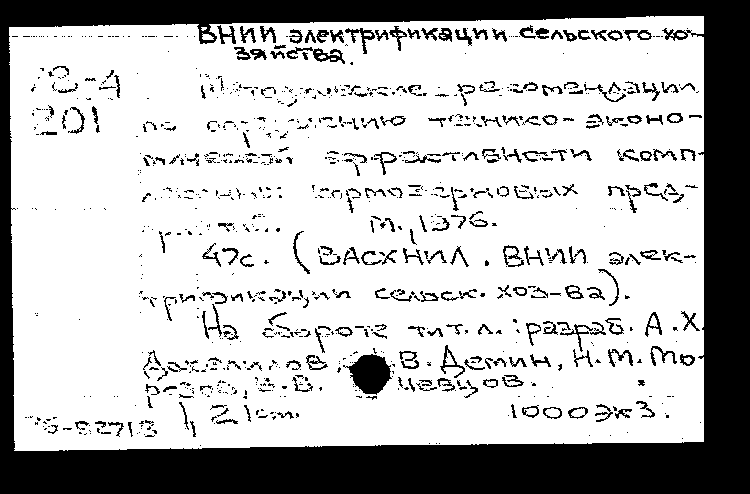 ВНИИ электрификации сельского хо-
зяйства.
78-4 Методические рекомендации
201 по определению технико-эконо-
мической эффективности комп-
лексных кормозерновых пред-
приятий. М., 1976.
47с. (ВАСХНИЛ. ВНИИ элек-
трификации сельск. хоз-ва).
На обороте тит.л.: разраб. А.Х.
В. Демин, Н.М. Мо-
розов, В.В.
21см. 1000 экз.